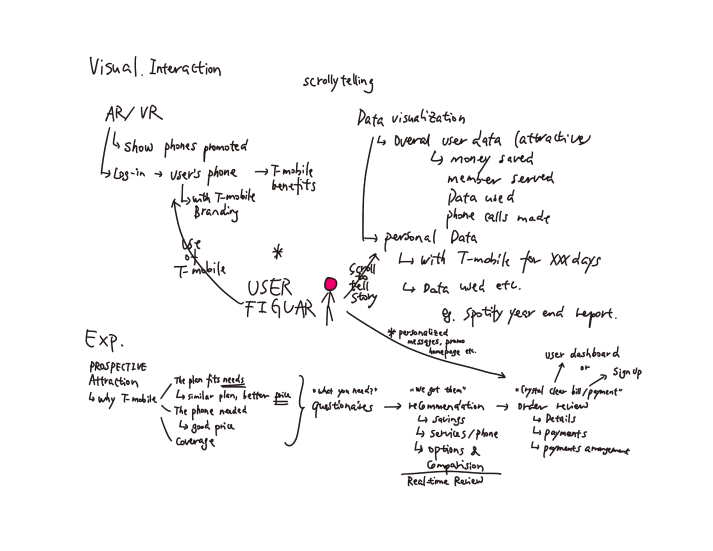 Visual. Interaction
scrollytelling
AR/ VR
↳ Show phones promoted
↳ Log-in → user's phone → T-mobile
benefits
↳ with T-mobile
Branding
Use
of
T-mobile
*
USER
FIGUAR
Scroll
to
tell
Story
Data visualization
↳ Overal user data (attractive
↳ money saved
member served
Data used
phone calls made
↳ personal Data
↳ with T-mobile for XXX days
↳ Data used etc.
eg. Spotify year end report.
* personalized
messages, promo
homepage etc.
Exp.
PROSPECTIVE
Attraction
↳ why T-mobile
The plan fits needs
↳ similar plan, better price
The phone needed
↳ good price
Coverage
"what you need?"
questionaires
→
"We got them"
recommendation
↳ savings
↳ services/phone
↳ options &
Comparision
Real-time Review
→
"Crystal clear bill/payment"
order review
↳ Details
↳ payments
↳ payments arrangement
user dashboard
or
Sign up